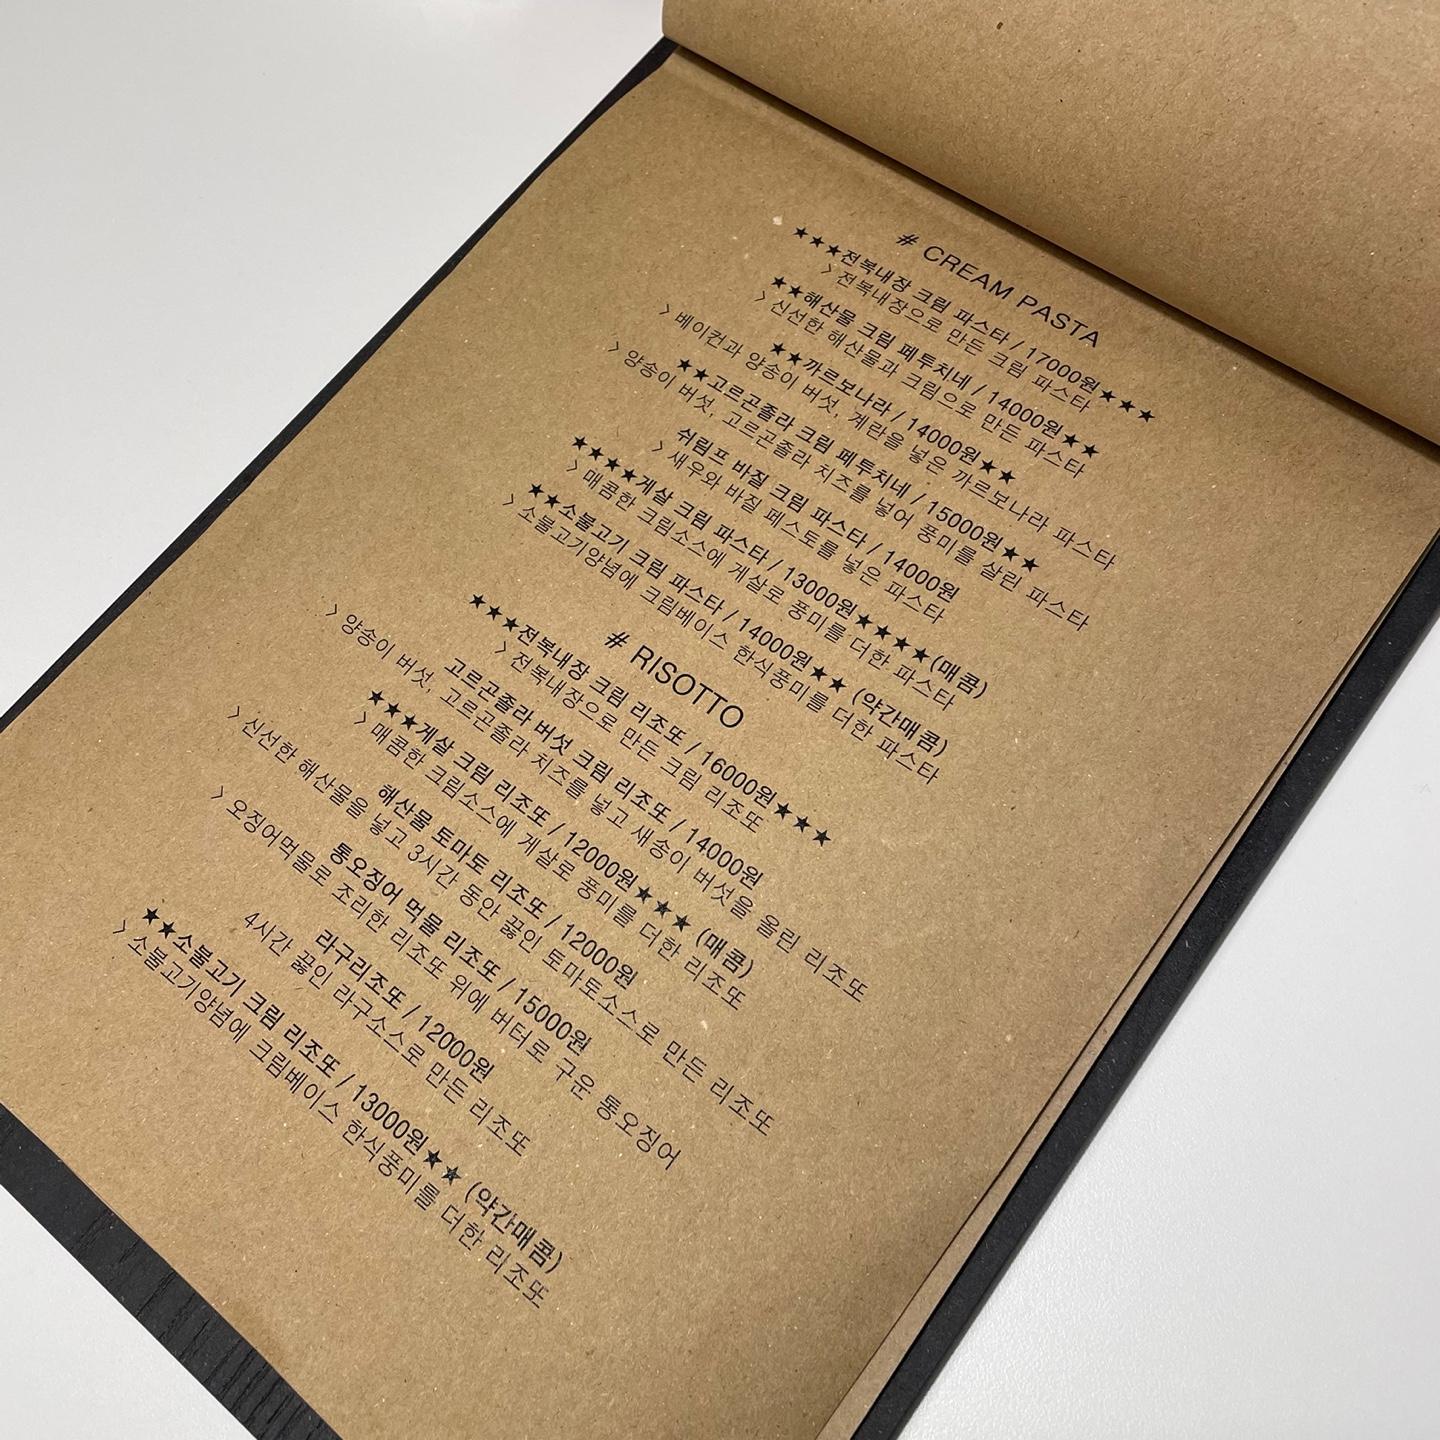 # CREAM PASTA
★★★전복내장 크림 파스타 / 17000원★★★
> 전복내장으로 만든 크림 파스타
★★해산물 크림 페투치네 / 14000원★★
> 신선한 해산물과 크림으로 만든 파스타
★★까르보나라 / 14000원★★
> 베이컨과 양송이 버섯, 계란을 넣은 까르보나라 파스타
★★고르곤졸라 크림 페투치네 / 15000원★★
> 양송이 버섯, 고르곤졸라 치즈를 넣어 풍미를 살린 파스타
쉬림프 바질 크림 파스타 / 14000원
> 새우와 바질 페스토를 넣은 파스타
★★★★게살 크림 파스타 / 13000원★★★★(매콤)
> 매콤한 크림소스에 게살로 풍미를 더한 파스타
★★소불고기 크림 파스타 / 14000원★★ (약간매콤)
> 소불고기양념에 크림베이스 한식풍미를 더한 파스타
# RISOTTO
★★★전복내장 크림 리조또 / 16000원★★★
> 전복내장으로 만든 크림 리조또
고르곤졸라 버섯 크림 리조또 / 14000원
> 양송이 버섯, 고르곤졸라 치즈를 넣고 새송이 버섯을 올린 리조또
★★★게살 크림 리조또 / 12000원★★★ (매콤)
> 매콤한 크림소스에 게살로 풍미를 더한 리조또
해산물 토마토 리조또 / 12000원
> 신선한 해산물을 넣고 3시간 동안 끓인 토마토소스로 만든 리조또
통오징어 먹물 리조또 / 15000원
> 오징어먹물로 조리한 리조또 위에 버터로 구운 통오징어
라구리조또 / 12000원
4시간 끓인 라구소스로 만든 리조또
★★소불고기 크림 리조또 / 13000원★★ (약간매콤)
> 소불고기양념에 크림베이스 한식풍미를 더한 리조또